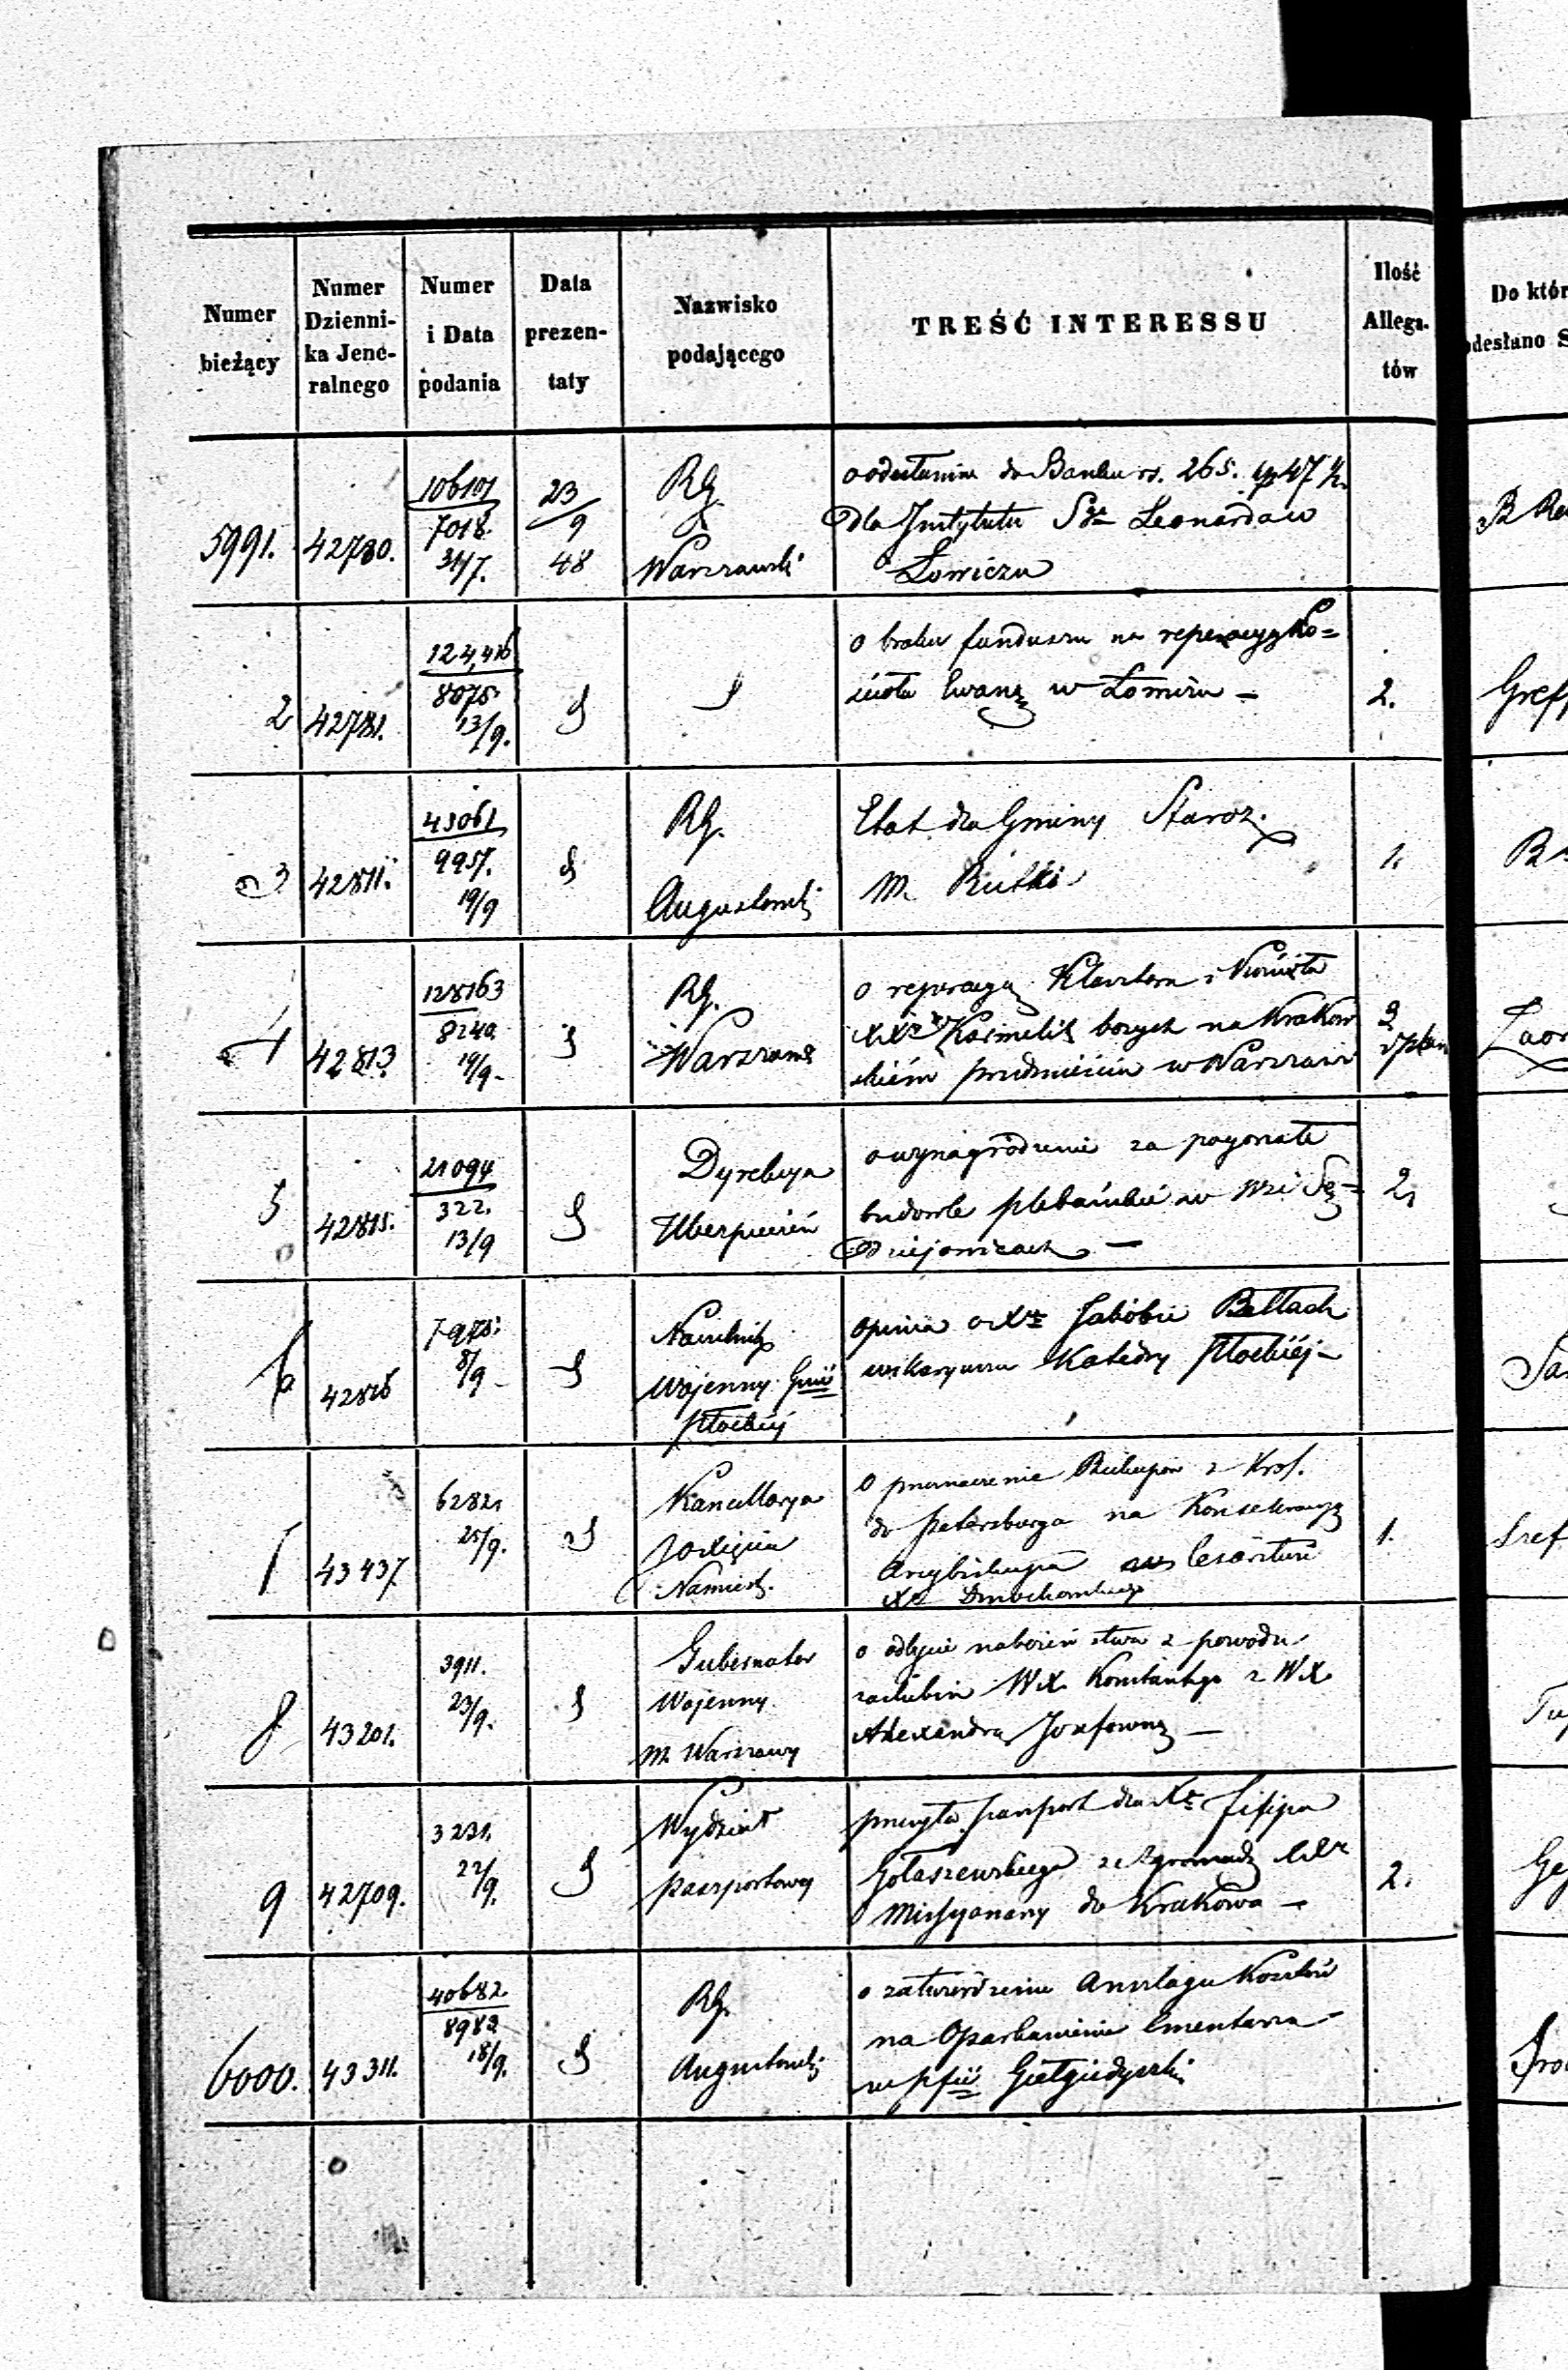 Numer bieżący | Numer Dzienni- ka Jene- ralnego | Numer i Data podania | Data prezen- taty | Nazwisko podającego | TREŚĆ INTERESSU | Ilość Allega- tów | Do któr odesłano S
5991. | 42780. | 106101 / 7018. 31/7. | 23/9 48 | RG. Warszawski | o odesłanie do Banku rs. 265. kp 47 ½
dla Instytutu Sgo Leonarda w
Łowiczu
2 | 42781. | 124,416 / 8075. 13/9. | o braku funduszu na reperacyą Ko=
ścioła Ewang w Łowiczu – | 2.
3 | 42811. | 43061 / 9957. 19/9 | RG. Augustowski | Etat dla Gminy Staroz.
M. Rutki | 1.
4 | 42813. | 128163 / 8240. 19/9 - | RG. Warszaws | o reperacyą Klasztoru i Kościoła
XXży Karmelit bosych na Krakow
skiém przedmieściu w Warszawie | 3 i plan
5 | 42815. | 21094 / 322. 13/9 | Dyrekcya Ubezpieczeń | o wynagrodzenie za pogorzałe
budowle plebańskie we Wsi Sę=
dziejowicach – | 2
6 | 42816 | 7975. 8/9 - | Naczelnik Wojenny Gnii Płockiéj | opinia o Xdz Jakóbie Bełtach
wikaryuszu Katedry Płockiéj –
7 | 43437. | 6282. 25/9. | Kancellarya JO Xięcia Namiest. | O przeznaczenie Biskupów z Król.
do Petersburga na Konsekracyą
Arcybiskupa w Cesarstwie
Xa Dmochowskiego | 1.
8 | 43201. | 3911. 23/9. | Gubernator Wojenny M. Warszawy | o odbycie nabożeństwa z powodu
zaślubin WX. Konstantego z WX
Alexandrą Jozefowną –
9 | 42709. | 3231. 22/9. | Wydział paszportowy | przesyła paszport dla Xa Filipa
Gołaszewskiego ze Zgromadz XXży
Missyonarzy do Krakowa – | 2.
6000. | 43311. | 40682 / 8982 18/9. | RG. Augustowski | o zatwierdzenie Anszlagu Kosztów
na Oparkanienie Cmentarza
w pfii Giełgudyszki